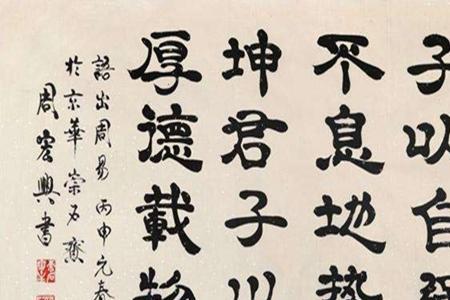 子以自
不息地勢
坤君子以
厚德載物
語出周易 丙申元春
於京華崇齋
周宏興書